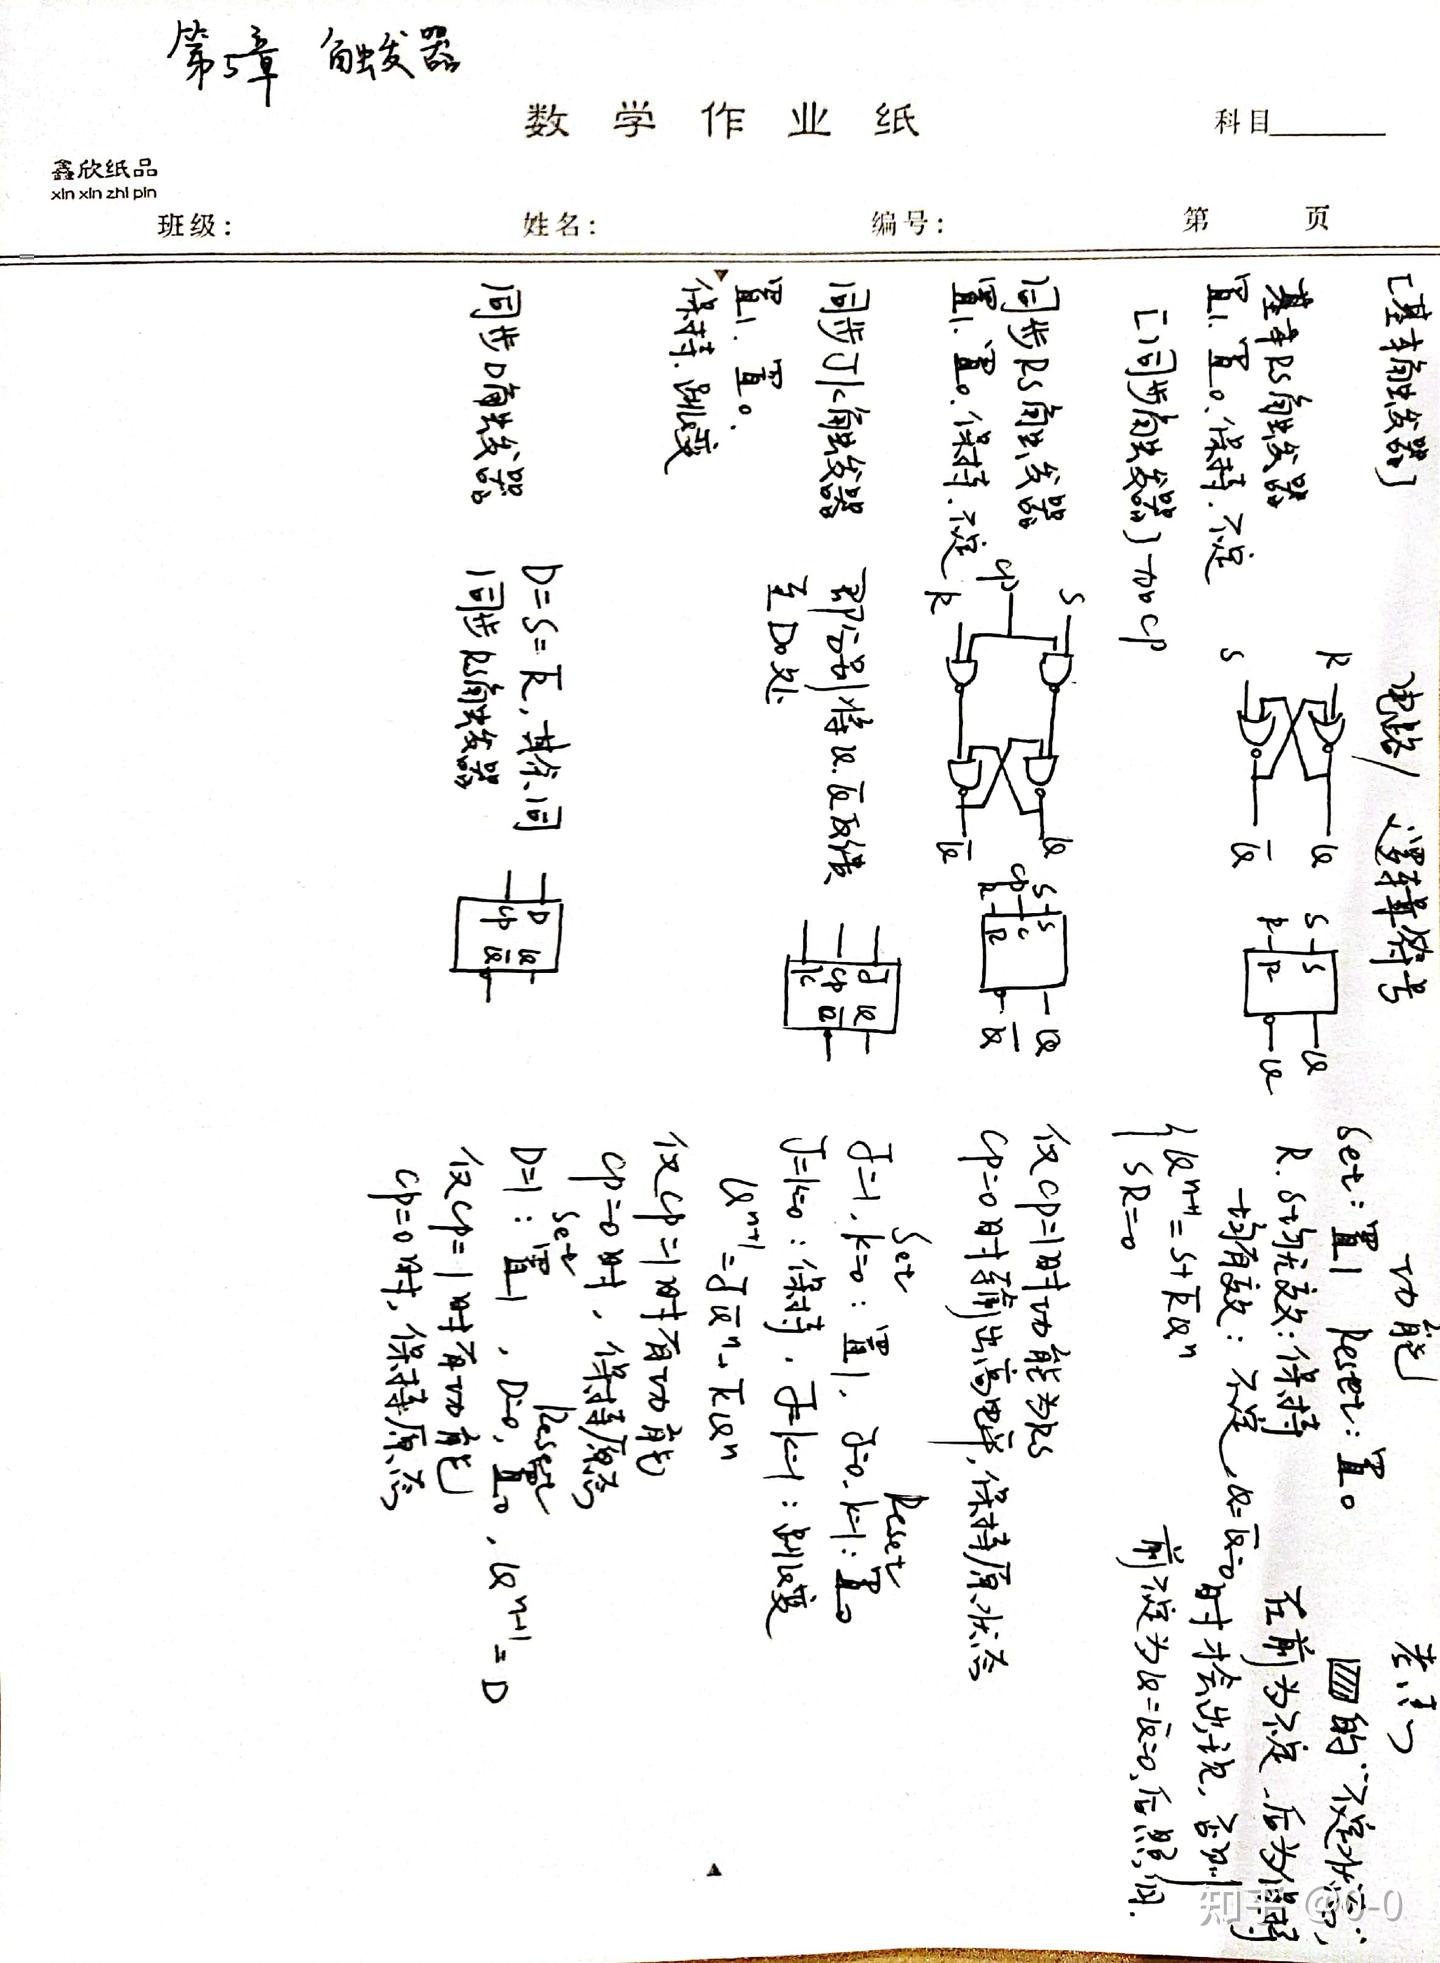 第5章 触发器
数学作业纸
科目
鑫欣纸品
xin xin zhi pin
班级：
姓名：
编号：
第 页
电路/逻辑符号
功能
考点
[基本触发器]
基本RS触发器
置1.置0.保持.不定
R
S
Q
Q̅
S
R
S
R
Q
Q
Set：置1 Reset：置0
R.S均无效：保持
均有效：不定，Q=Q̅=0
{Q^{n+1}=S+R̅Q^n
SR=0
的"不定状态"
在前为不定，后为保持
时才会出现，否则
前不定为Q=Q̅=0，后照旧.
[同步触发器]加CP
同步RS触发器
置1.置0.保持.不定
S
CP
R
Q
Q̅
S
CP
R
S
C
R
Q
Q̅
仅CP=1时功能为RS
CP=0时输出高电平，保持原状态
同步JK触发器
置1.置0.
保持.跳变
即分别将Q.Q̅反馈
至
处
J
CP
K
Q
Q̅
Set
Reset
J=1，K=0：置1，J=0，K=1：置0
J=K=0：保持，J=K=1：跳变
Q^{n+1}=JQ̅^n+K̅Q^n
仅CP=1时有功能
CP=0时，保持原态
同步D触发器
D=S=R̅，其余同
同步RS触发器
D
CP
Q
Q̅
Set
Reset
D=1：置1，D=0，置0，Q^{n+1}=D
仅CP=1时有功能
CP=0时，保持原态
知乎 @0-0